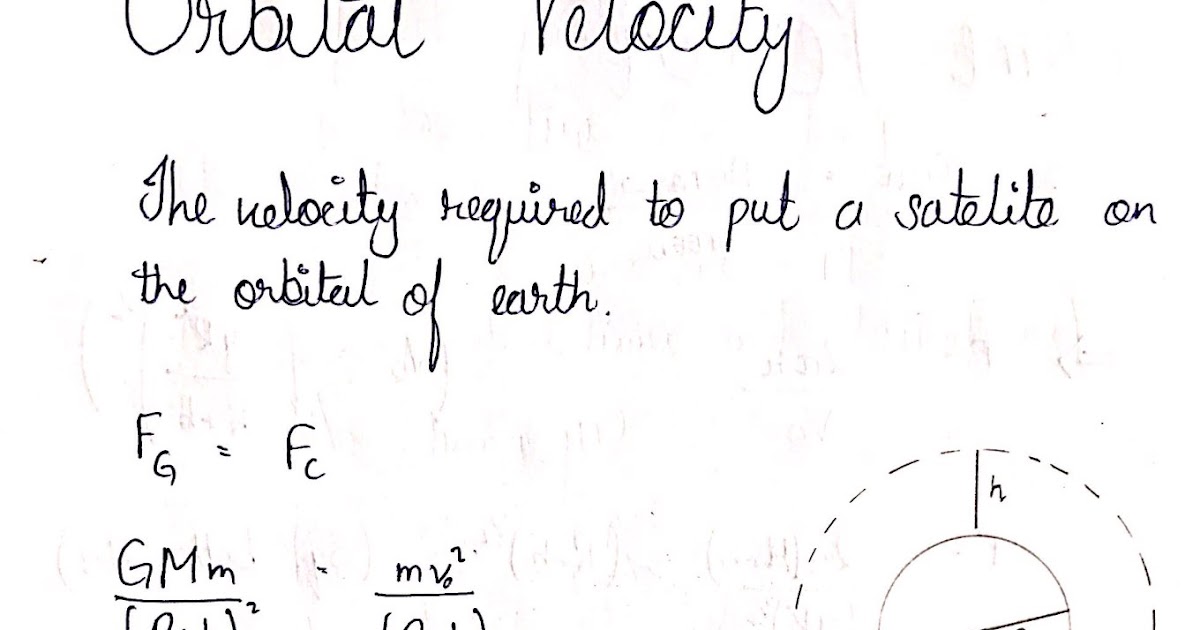 Orbital Velocity
The velocity required to put a satelite on
the orbital of earth.
F_G = F_C
h
GMm = mv₀²
(R+h)² (R+h)